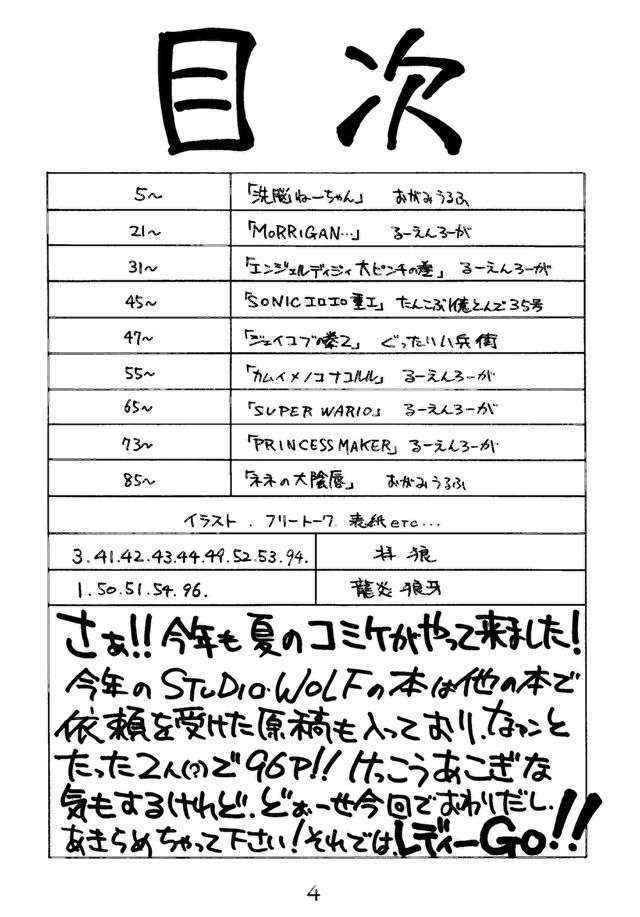 目次
5〜 「洗脳ねーちゃん」 おがみうるふ
21〜 「MORRIGAN…」 るーえんろーが
31〜 「エンジェルディジィ大ピンチの巻」 るーえんろーが
45〜 「SONICエロエロ重工」 たんこぶ1億とんで35号
47〜 「ジェイコブの拳2」 ぐったり八兵衛
55〜 「カムイメノコナコルル」 るーえんろーが
65〜 「SUPER WARIO」 るーえんろーが
73〜 「PRINCESS MAKER」 るーえんろーが
85〜 「ネネの大陰唇」 おがみうるふ
イラスト.フリートーク 表紙etc...
3.41.42.43.44.49.52.53.94. 拝 狼
1.50.51.54.96. 龍炎狼牙
さぁ!!今年も夏のコミケがやって来ました!
今年のSTUDIO・WOLFの本は他の本で
依頼を受けた原稿も入っており、なァンと
たった2人(?)で96P!! けっこうあこぎな
気もするけれど、どぉーせ今回でおわりだし、
あきらめちゃって下さい!それでは、レディーGo!!
4